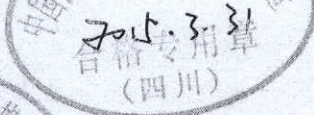 中国
2015.3.31
合格专用章
(四川)